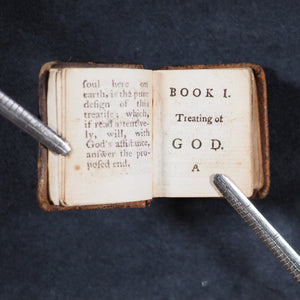 soul here on
earth, is the pure
design of this
treatise; which,
if read attentive-
ly, will, with
God's assistance,
answer the pro-
posed end.
BOOK I.
Treating of
GOD.
A